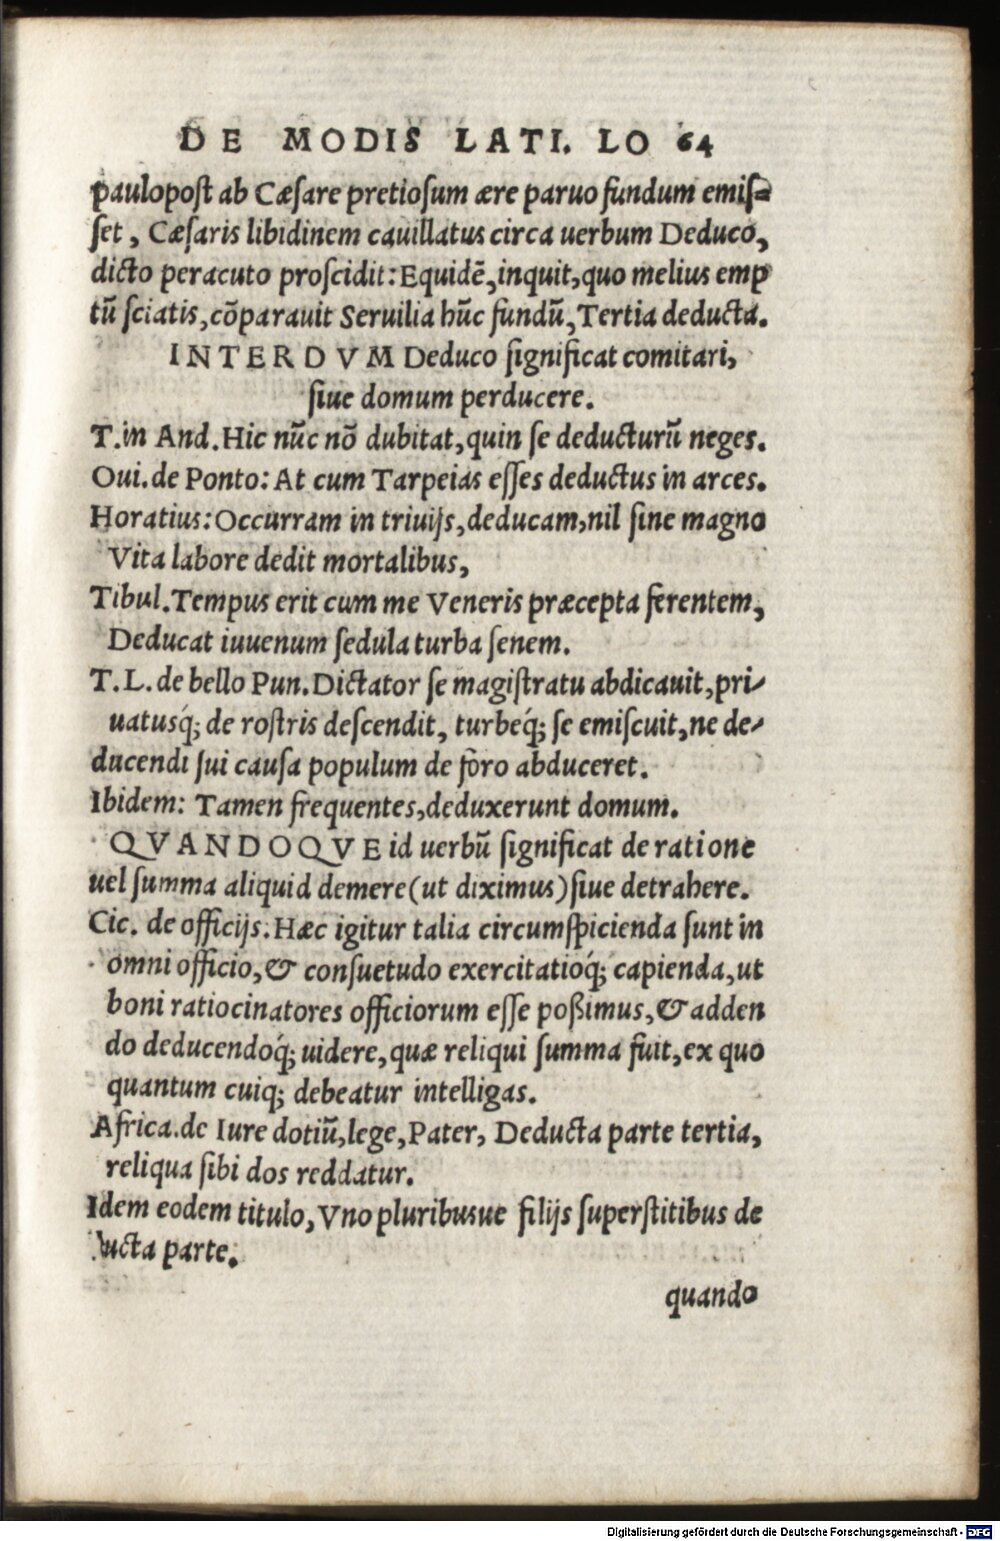 DE MODIS LATI. LO 64
paulopoſt ab Cæſare pretioſum ære paruo fundum emiſ=
ſet, Cæſaris libidinem cauillatus circa uerbum Deduco,
dicto peracuto proſcidit: Equidẽ, inquit, quo melius emp
tũ ſciatis, cõparauit Seruilia hũc fundũ, Tertia deducta.
INTERDVM Deduco ſignificat comitari,
ſiue domum perducere.
T. in And. Hic nũc nõ dubitat, quin ſe deducturũ neges.
Oui. de Ponto: At cum Tarpeias eſſes deductus in arces.
Horatius: Occurram in triuijs, deducam, nil ſine magno
Vita labore dedit mortalibus,
Tibul. Tempus erit cum me Veneris præcepta ferentem,
Deducat iuuenum ſedula turba ſenem.
T. L. de bello Pun. Dictator ſe magiſtratu abdicauit, pri-
uatusq́; de roſtris deſcendit, turbeq́; ſe emiſcuit, ne de-
ducendi ſui cauſa populum de foro abduceret.
Ibidem: Tamen frequentes, deduxerunt domum.
QVANDOQVE id uerbũ ſignificat de ratione
uel ſumma aliquid demere (ut diximus) ſiue detrahere.
Cic. de officijs. Hæc igitur talia circumſpicienda ſunt in
omni officio, & conſuetudo exercitatioq́; capienda, ut
boni ratiocinatores officiorum eſſe poßimus, & adden
do deducendoq́; uidere, quæ reliqui ſumma fuit, ex quo
quantum cuiq; debeatur intelligas.
Africa. de Iure dotiũ, lege, Pater, Deducta parte tertia,
reliqua ſibi dos reddatur.
Idem eodem titulo, Vno pluribusue filijs ſuperſtitibus de
ducta parte.
quando
Digitalisierung gefördert durch die Deutsche Forschungsgemeinschaft - DFG